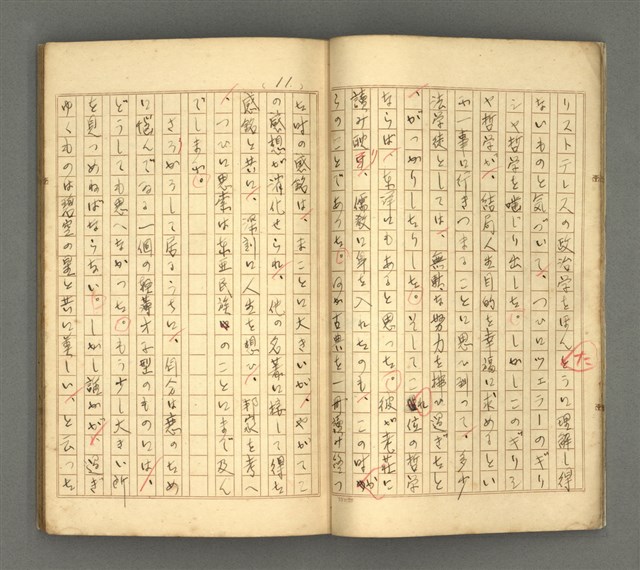 リストテレスの政治学をほんとうに理解し得
ないものと気づいて、つひにツェラーのギリ
シヤ哲学を噛じり出した。しかしこのギリシ
ヤ哲学が、結局人生目的を幸福に求めるとい
ふ一事に行きつまることに思ひ到って、多少
法学徒としては、無駄な努力を拂ひ過ぎたと
、がっかりしたりした。そしてこれ位の哲学
ならば、東洋にもあると思った。彼が老荘に
讀み耽り、儒教に身を入れたのも、この時か
らのことであった。何か古典を一冊讀み終っ
11.
た時の感銘は、まことに大きいが、やがてこ
の感想が消化せられ、他の名著に接して得た
感銘と共に、深刻に人生を想ひ、邦家を考へ
、つひに思索は東亜民族のことにまで及ん
でしまふ。
さうかうして居るうちに、自分は恋のため
に悩んでゐる一個の軽薄才子型のものには、
どうしても思へなかった。もう少し大きい所
を見つめねばならない。しかし誰かが、過ぎ
ゆくものは碧空の星と共に美しい、と云った